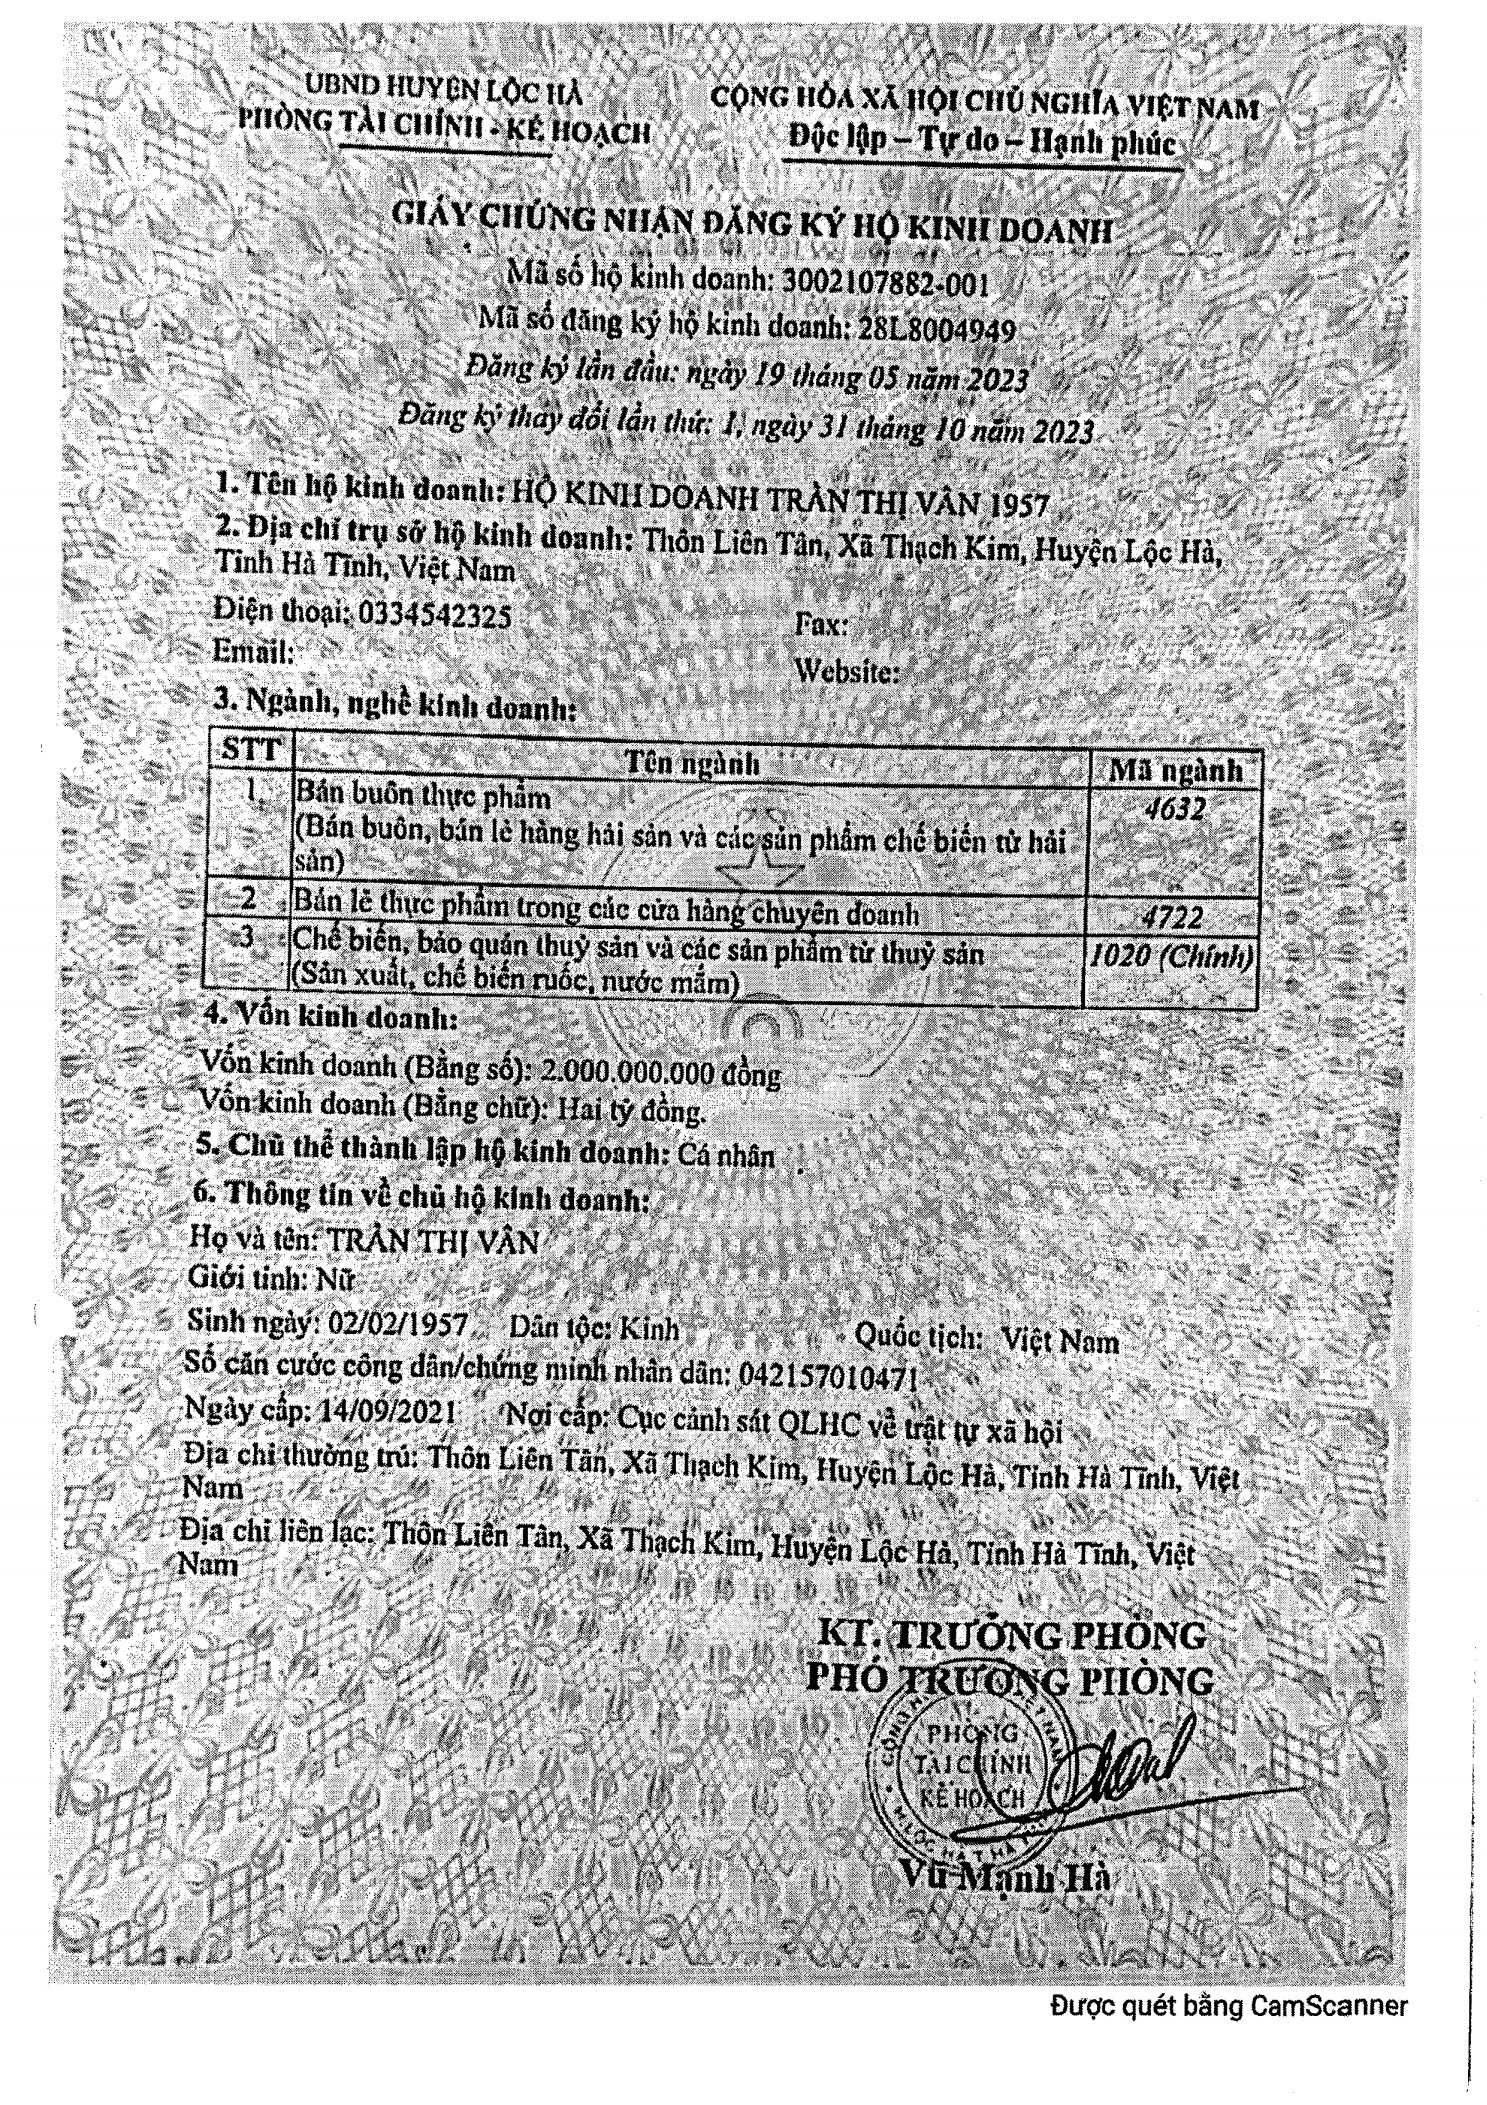 UBND HUYỆN LỘC HÀ
PHÒNG TÀI CHÍNH - KẾ HOẠCH
CỘNG HÒA XÃ HỘI CHỦ NGHĨA VIỆT NAM
Độc lập – Tự do – Hạnh phúc
GIẤY CHỨNG NHẬN ĐĂNG KÝ HỘ KINH DOANH
Mã số hộ kinh doanh: 3002107882-001
Mã số đăng ký hộ kinh doanh: 28L8004949
Đăng ký lần đầu: ngày 19 tháng 05 năm 2023
Đăng ký thay đổi lần thứ: 1, ngày 31 tháng 10 năm 2023
1. Tên hộ kinh doanh: HỘ KINH DOANH TRẦN THỊ VÂN 1957
2. Địa chỉ trụ sở hộ kinh doanh: Thôn Liên Tân, Xã Thạch Kim, Huyện Lộc Hà,
Tỉnh Hà Tĩnh, Việt Nam
Điện thoại: 0334542325 Fax:
Email: Website:
3. Ngành, nghề kinh doanh:
STT Tên ngành Mã ngành
1 Bán buôn thực phẩm 4632
(Bán buôn, bán lẻ hàng hải sản và các sản phẩm chế biến từ hải
sản)
2 Bán lẻ thực phẩm trong các cửa hàng chuyên doanh 4722
3 Chế biến, bảo quản thuỷ sản và các sản phẩm từ thuỷ sản 1020 (Chính)
(Sản xuất, chế biến ruốc, nước mắm)
4. Vốn kinh doanh:
Vốn kinh doanh (Bằng số): 2.000.000.000 đồng
Vốn kinh doanh (Bằng chữ): Hai tỷ đồng.
5. Chủ thể thành lập hộ kinh doanh: Cá nhân
6. Thông tin về chủ hộ kinh doanh:
Họ và tên: TRẦN THỊ VÂN
Giới tính: Nữ
Sinh ngày: 02/02/1957 Dân tộc: Kinh Quốc tịch: Việt Nam
Số căn cước công dân/chứng minh nhân dân: 042157010471
Ngày cấp: 14/09/2021 Nơi cấp: Cục cảnh sát QLHC về trật tự xã hội
Địa chỉ thường trú: Thôn Liên Tân, Xã Thạch Kim, Huyện Lộc Hà, Tỉnh Hà Tĩnh, Việt
Nam
Địa chỉ liên lạc: Thôn Liên Tân, Xã Thạch Kim, Huyện Lộc Hà, Tỉnh Hà Tĩnh, Việt
Nam
KT. TRƯỞNG PHÒNG
PHÓ TRƯỞNG PHÒNG
PHÒNG
TÀI CHÍNH
KẾ HOẠCH
Vũ Mạnh Hà
Được quét bằng CamScanner